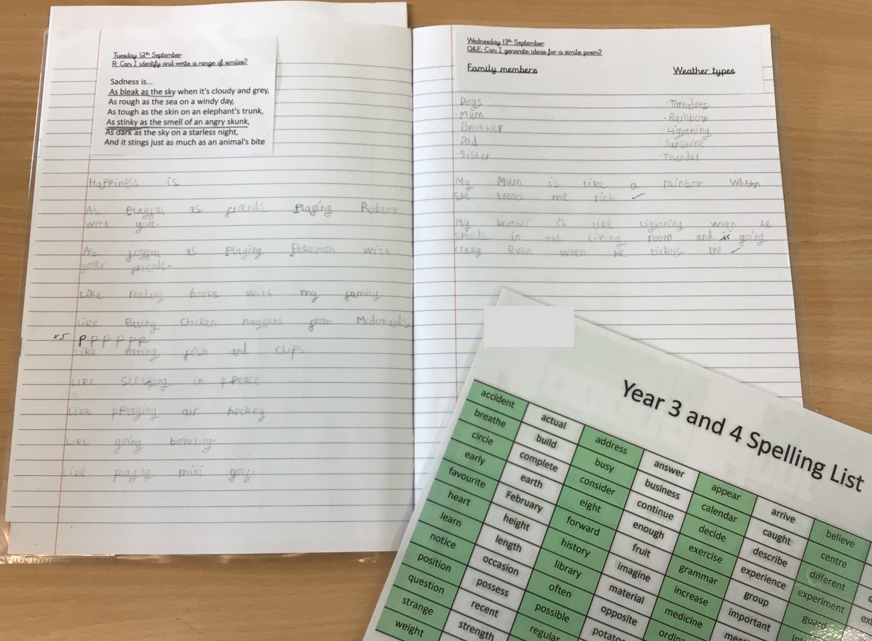 Tuesday 12th September
R: Can I identify and write a range of similes?
Sadness is...
As bleak as the sky when it's cloudy and grey,
As rough as the sea on a windy day,
As tough as the skin on an elephant's trunk,
As stinky as the smell of an angry skunk,
As dark as the sky on a starless night,
And it stings just as much as an animal's bite
Happiness is
As as friends playing Roblox
with your
As as playing Pokemon with
your friends.
Like reading books with my family
Like Eating chicken nuggets from McDonald's
rs P P P P P P
Like Eating fish and chips
Like sleeping in
Like playing air hockey
Like going bowling
Like playing mini golf.
Wednesday 13th September
Q&E: Can I generate ideas for a simile poem?
Family members
Weather types
Dogs
·Mum
Brother
·Dad
·Sister
·Tornadoes
·Rainbow
·Lightning
·Sunshine
·Thunder
My Mum is like a rainbow when
she me
My brother is like lightning when he
in the living room and is going
crazy even when he me
Year 3 and 4 Spelling List
accident actual address answer appear arrive believe
breathe build busy business calendar caught centre
circle complete consider continue decide describe different
early earth eight enough exercise experience experiment
favourite February forward fruit grammar group guard
heart height history imagine increase important
learn length library material medicine
notice occasion often opposite
position possess possible
question recent regular
strange strength
weight